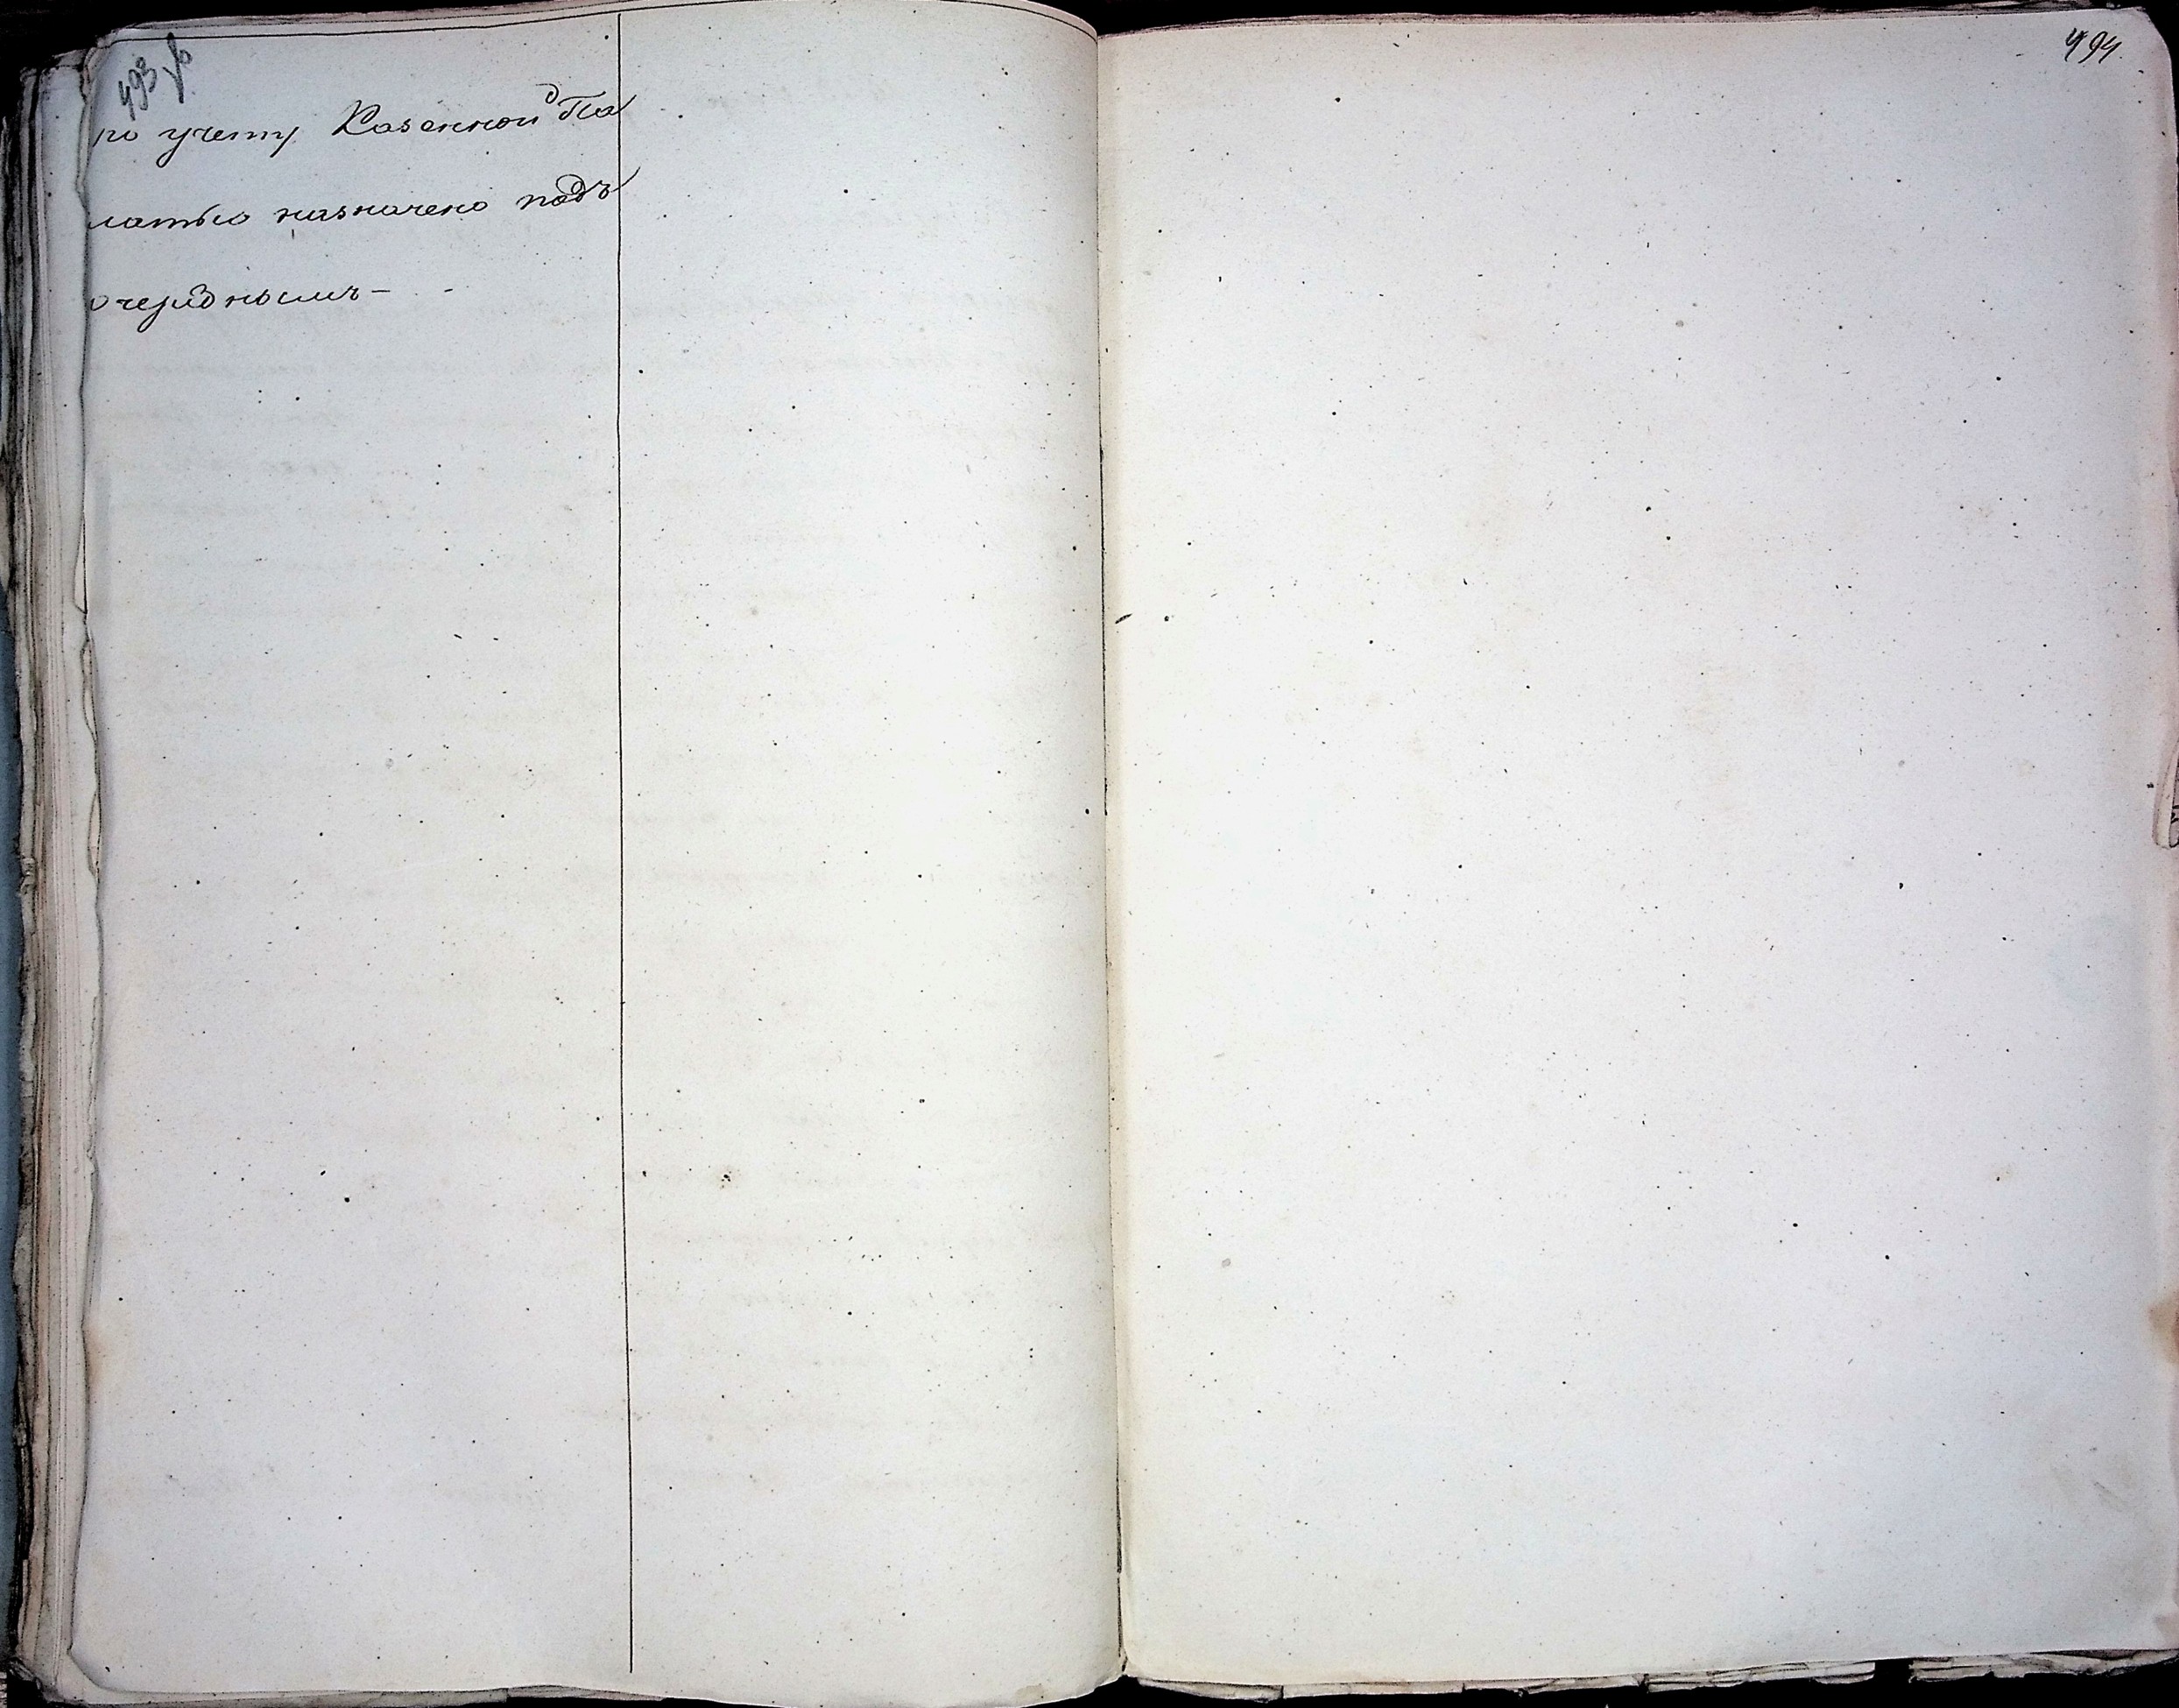 493 об
по учету Казенной Па
латы назначено подъ
очереднымъ —
494.